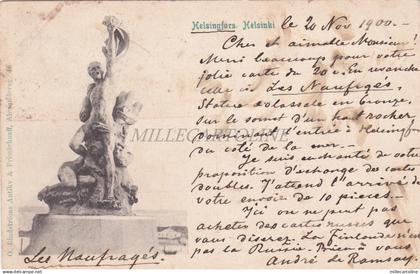 Helsingfors. Helsinki le 20 Nov 1900.
Cher et aimable Monsieur!
Merci beaucoup pour votre
jolie carte du 20 c. En revanche
celle-ci Les Naufragés,
Statue colossale en bronze,
sur le sommet d'un haut rocher
dominant l'entrée à Helsingf.
du côté de la mer.
Je suis enchanté de votre
proposition d'échange des cartes
doubles. J'attend l'arrivée de
votre envoi de 10 pieces.
Ici on ne peut pas
acheter des cartes russes que
vous diserez. La Finlande n'est
pas la Russie. Rien à vous
André de Ramsay
Les Naufragés.
MILLECARTOLINE